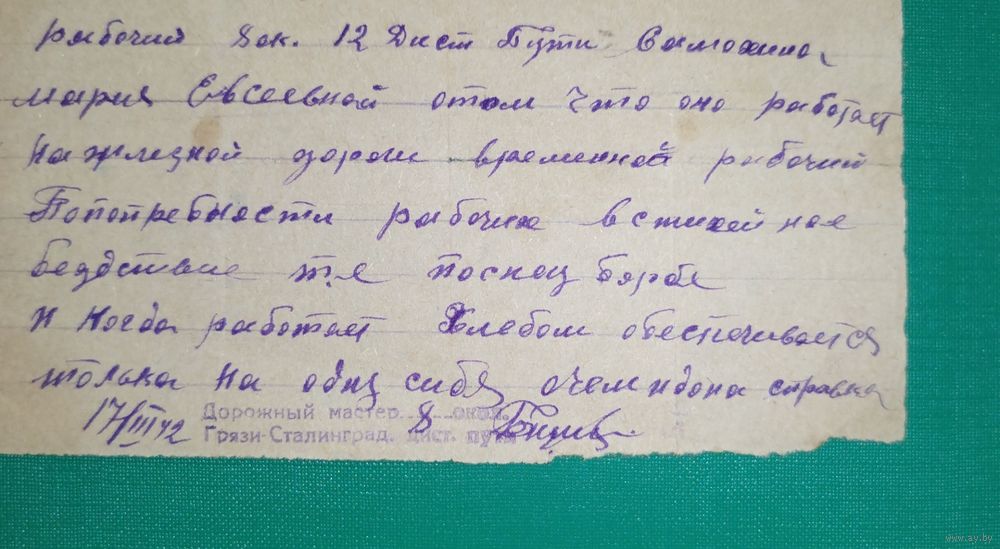 рабочий 8 ок. 12 Дист Пути
мария Евсеевной отом что оно работает
на жлезной дороги временной рабочий
Попотребности рабочих встихейное
бедствие т.е поснец барбе
И когда работает Хлебом обеспечивается
толька на одну себя очем идона справка
17/III 42 Дорожный мастер 8 окол.
Грязи-Сталинград. дист. пути
www.ay.by